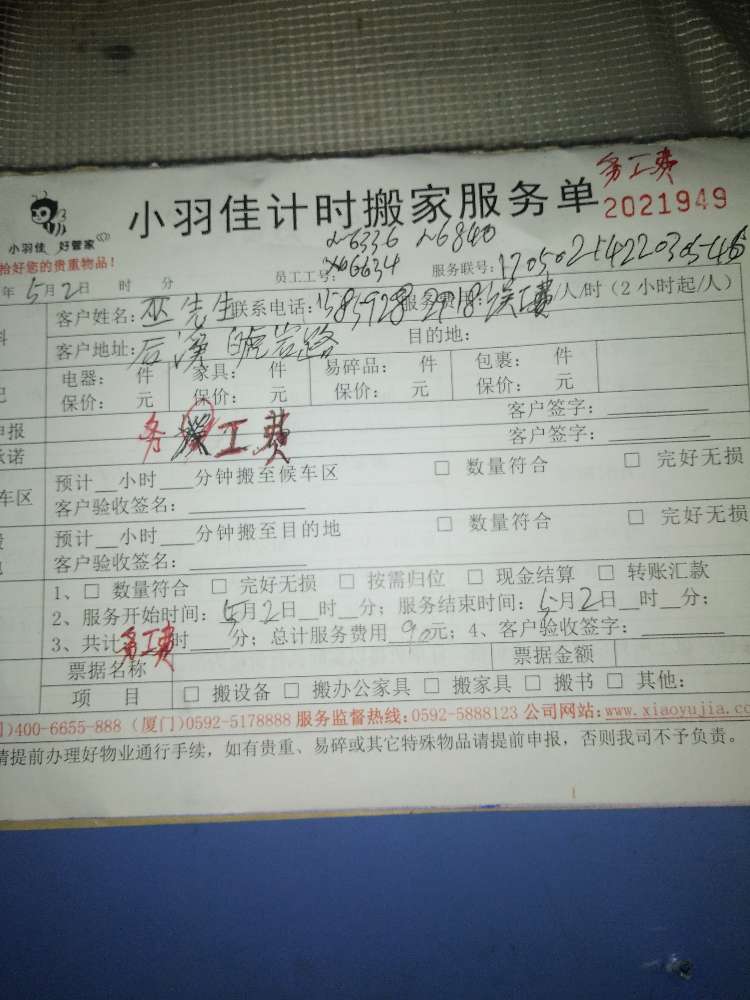 务工费
小羽佳计时搬家服务单 2021949
小羽佳 好管家
拾好您的贵重物品!
N6336 N6840
年5月2日 时 分 员工工号: N6634 服务联号:
客户姓名:巫先生 联系电话: 服务费用: 误工费/人/时(2小时起/人)
客户地址:后溪 岩路 目的地:
电器: 件 家具: 件 易碎品: 件 包裹: 件
保价: 元 保价: 元 保价: 元 保价: 元
申报 客户签字:
务工费
承诺 客户签字:
车区 预计__小时___分钟搬至候车区 □ 数量符合 □ 完好无损
客户验收签名:
预计__小时___分钟搬至目的地 □ 数量符合 □ 完好无损
客户验收签名:
1、□ 数量符合 □ 完好无损 □ 按需归位 □ 现金结算 □ 转账汇款
2、服务开始时间:5月2日__时__分;服务结束时间:5月2日__时__分;
3、共计务工费时___分;总计服务费用90元;4、客户验收签字:
票据名称 票据金额
项 目 □ 搬设备 □ 搬办公家具 □ 搬家具 □ 搬书 □ 其他:
)400-6655-888 (厦门)0592-5178888 服务监督热线:0592-5888123 公司网站:www.xiaoyujia.co
请提前办理好物业通行手续,如有贵重、易碎或其它特殊物品请提前申报,否则我司不予负责。